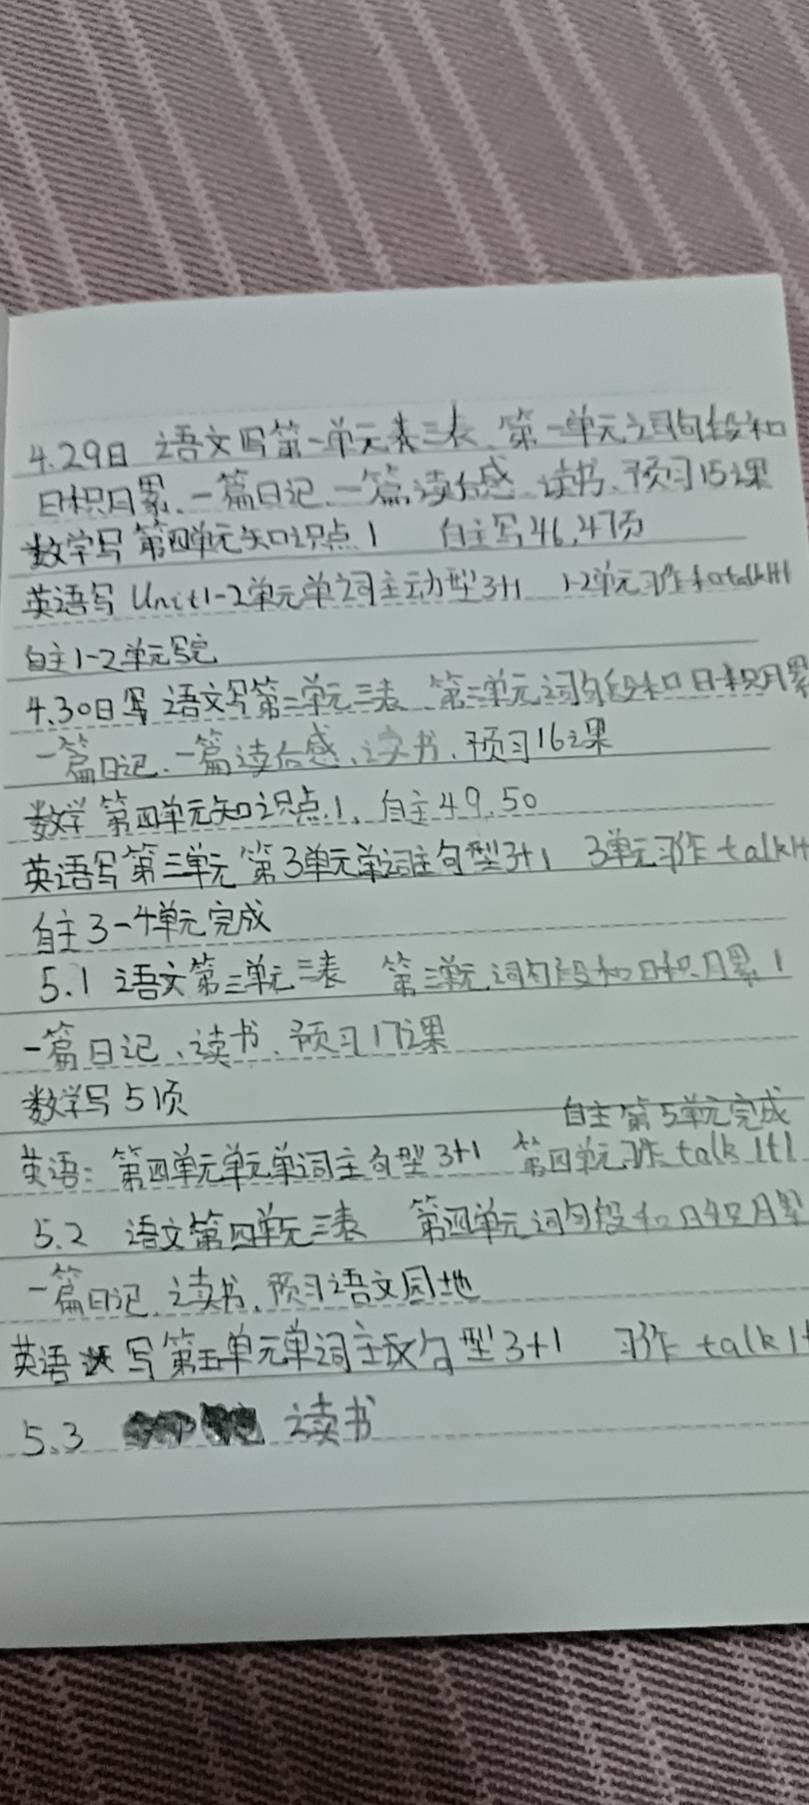 4.29日 语文写第一单元表三表、第一单元词句段和
日积月累、一篇日记、一篇读后感、读书、预习15课
数学写第四单元知识点1 自主写46,47页
英语写Unit1-2单元单词主动型3+1 1-2单元习作和talk1t1
自主1-2单元写完
4.30日写语文写第二单元三表、第二单元词句段和日积月累
一篇日记、一篇读后感、读书、预习16课
数学第四单元知识点.1、自主49.50
英语写第三单元第3单元单词主句型3+1 3单元习作talk1t
自主3-4单元完成
5.1 语文第三单元三表 第三单元词句段和日积月累1
一篇日记、读书、预习17课
数学写51页
自主第5单元完成
英语:第四单元单元单词主句型3+1 第四单元习作talk 1t1
5.2 语文第四单元三表 第四单元词句段和日积月累
一篇日记、读书、预习语文园地
英语写第五单元单词主句型3+1 习作 talk 1t
5.3 读书